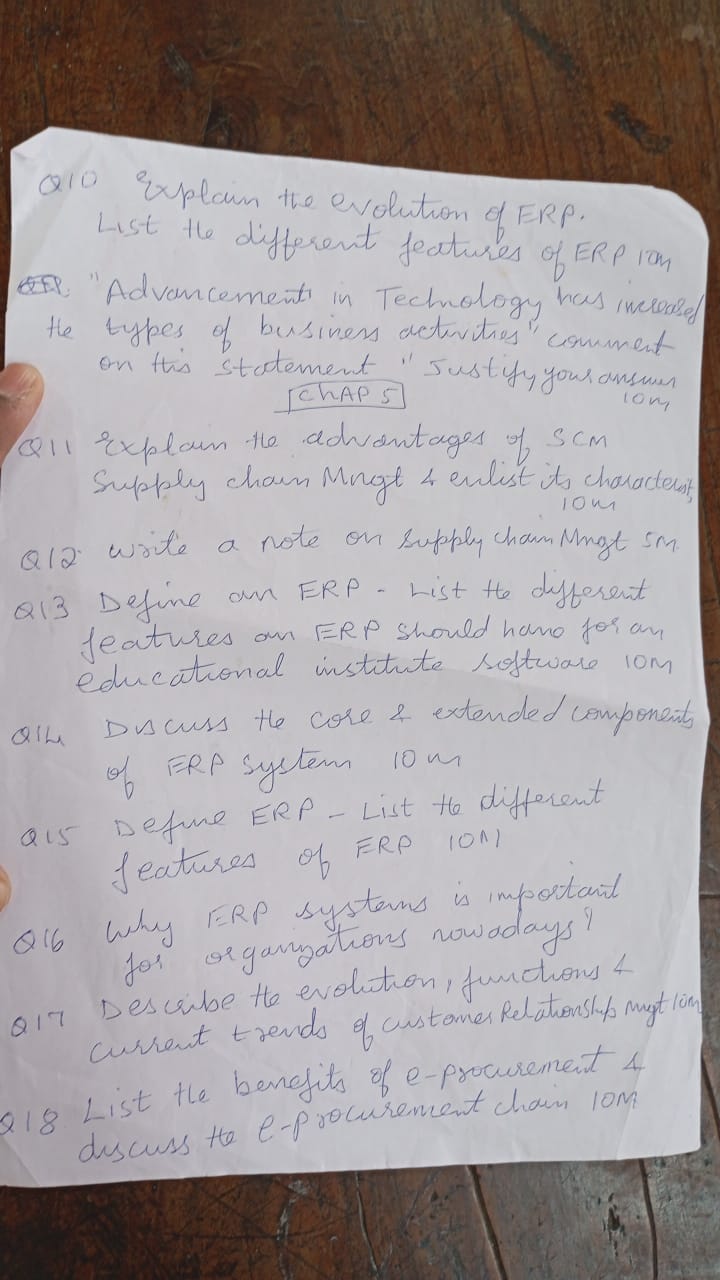 Q10 Explain the evolution of ERP.
List the different features of ERP 10M
"Advancement in Technology has increased
the types of business activities" comment
on this statement " Justify your answer
10m
CHAP 5
Q11 Explain the advantages of SCM
Supply chain Mngt & enlist its characterist,
10m
Q12 write a note on Supply chain Mngt 5M
Q13 Define an ERP - List the different
features an ERP should have for an
educational institute software 10M
Q14 Discuss the core & extended components
of ERP system 10m
Q15 Define ERP - List the different
features of ERP 10M
Q16 Why ERP systems is important
for organizations nowadays?
Q17 Describe the evolution, functions &
current trends of customer Relationship mngt 10m
Q18 List the benefits of e-procurement &
discuss the e-procurement chain 10M